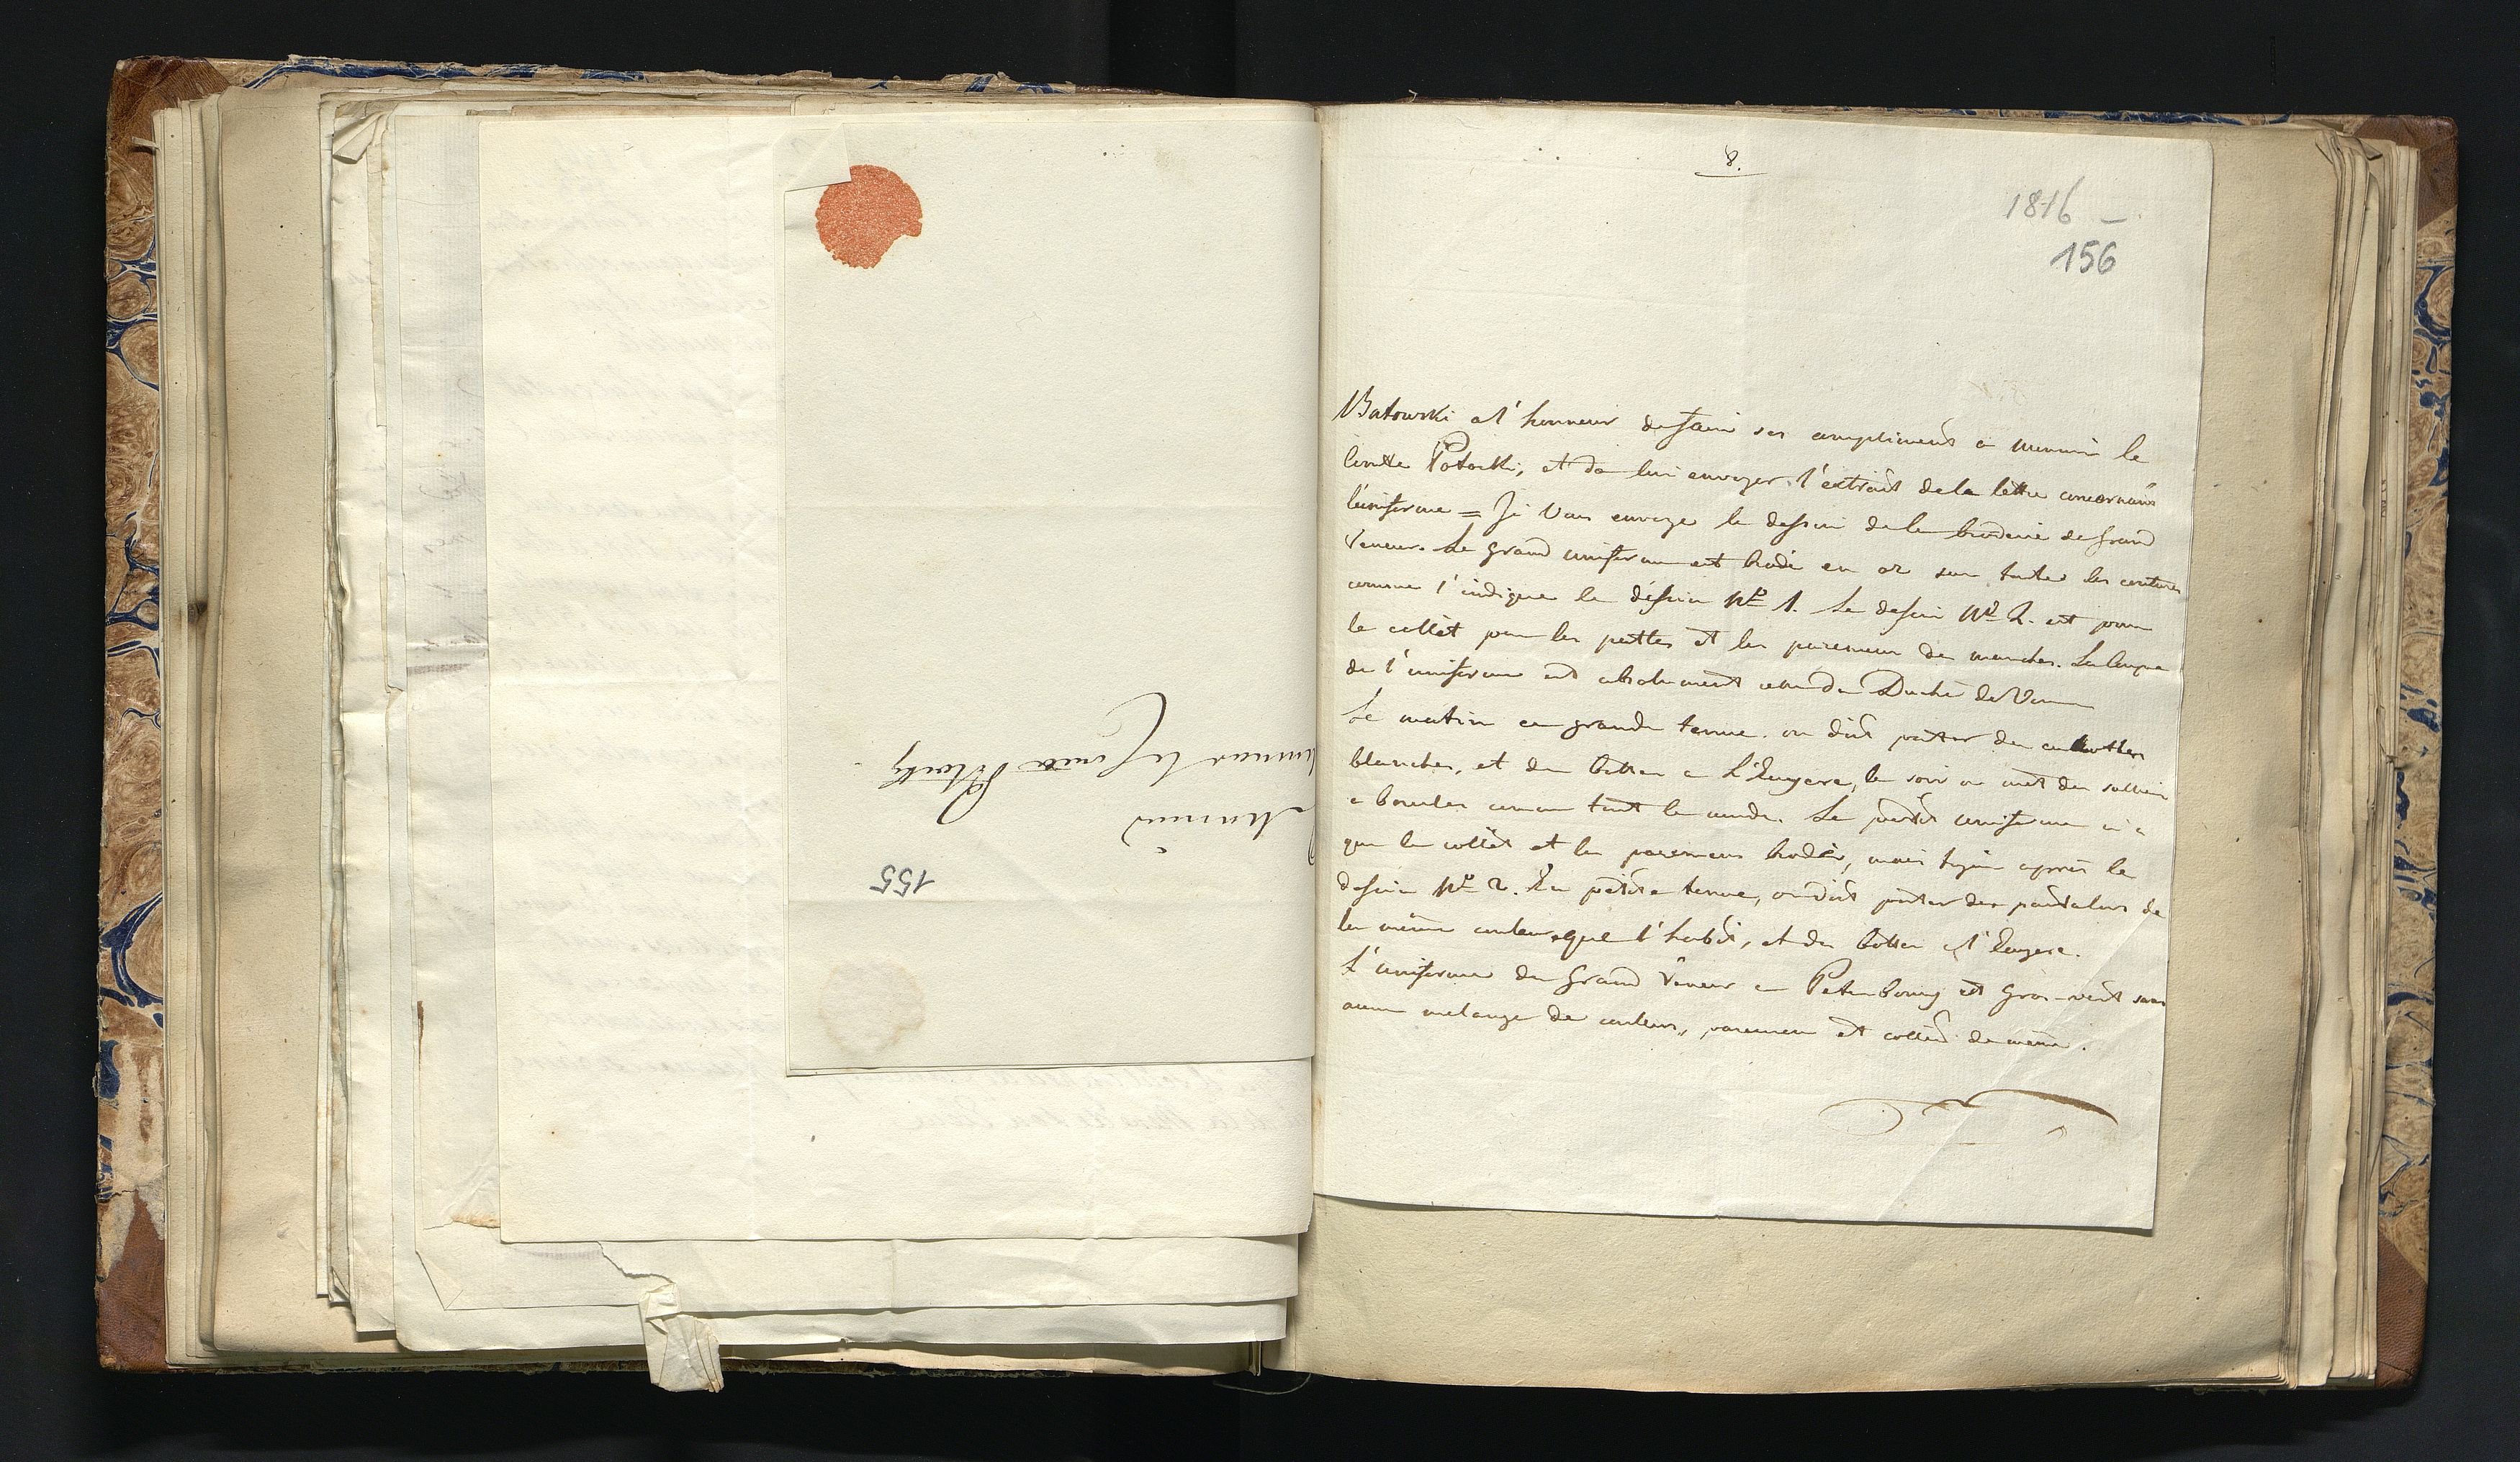 A Monsieur
Monsieur le Comte Potocky
155
8.
1816 –
156
Batowski a l'honneur de faire ses compliments a monsieur le
Comte Potocki, et de lui envoyer l'extrait de la lettre concernant
l'uniforme = Je Vous envoye le dessin de la broderie de grand
Veneur. Le grand uniforme est brodé en or sur toutes les coutures
comme l'indique le déssin Nº 1. Le dessin Nº 2. est pour
le collèt pour les pattes et les paremens de manches. La coupe
de l'uniforme est absolument celle du Duché de
Le matin en grande tenue. on doit porter des culottes
blanches, et des bottes a l'Ecuyere, le soir on met des souliers
a boucles comme tout le monde. Le petit uniforme n'a
que le collèt et les paremens brodés, mais toujours après le
dessin Nº 2. En petite tenue, on doit porter des pantalons de
la même couleur que l'habit, et des bottes a l'Ecuyere.
L'uniforme du Grand Veneur a Petersbourg est gros-vert sans
aucun melange de couleurs, paremens et collet de même.